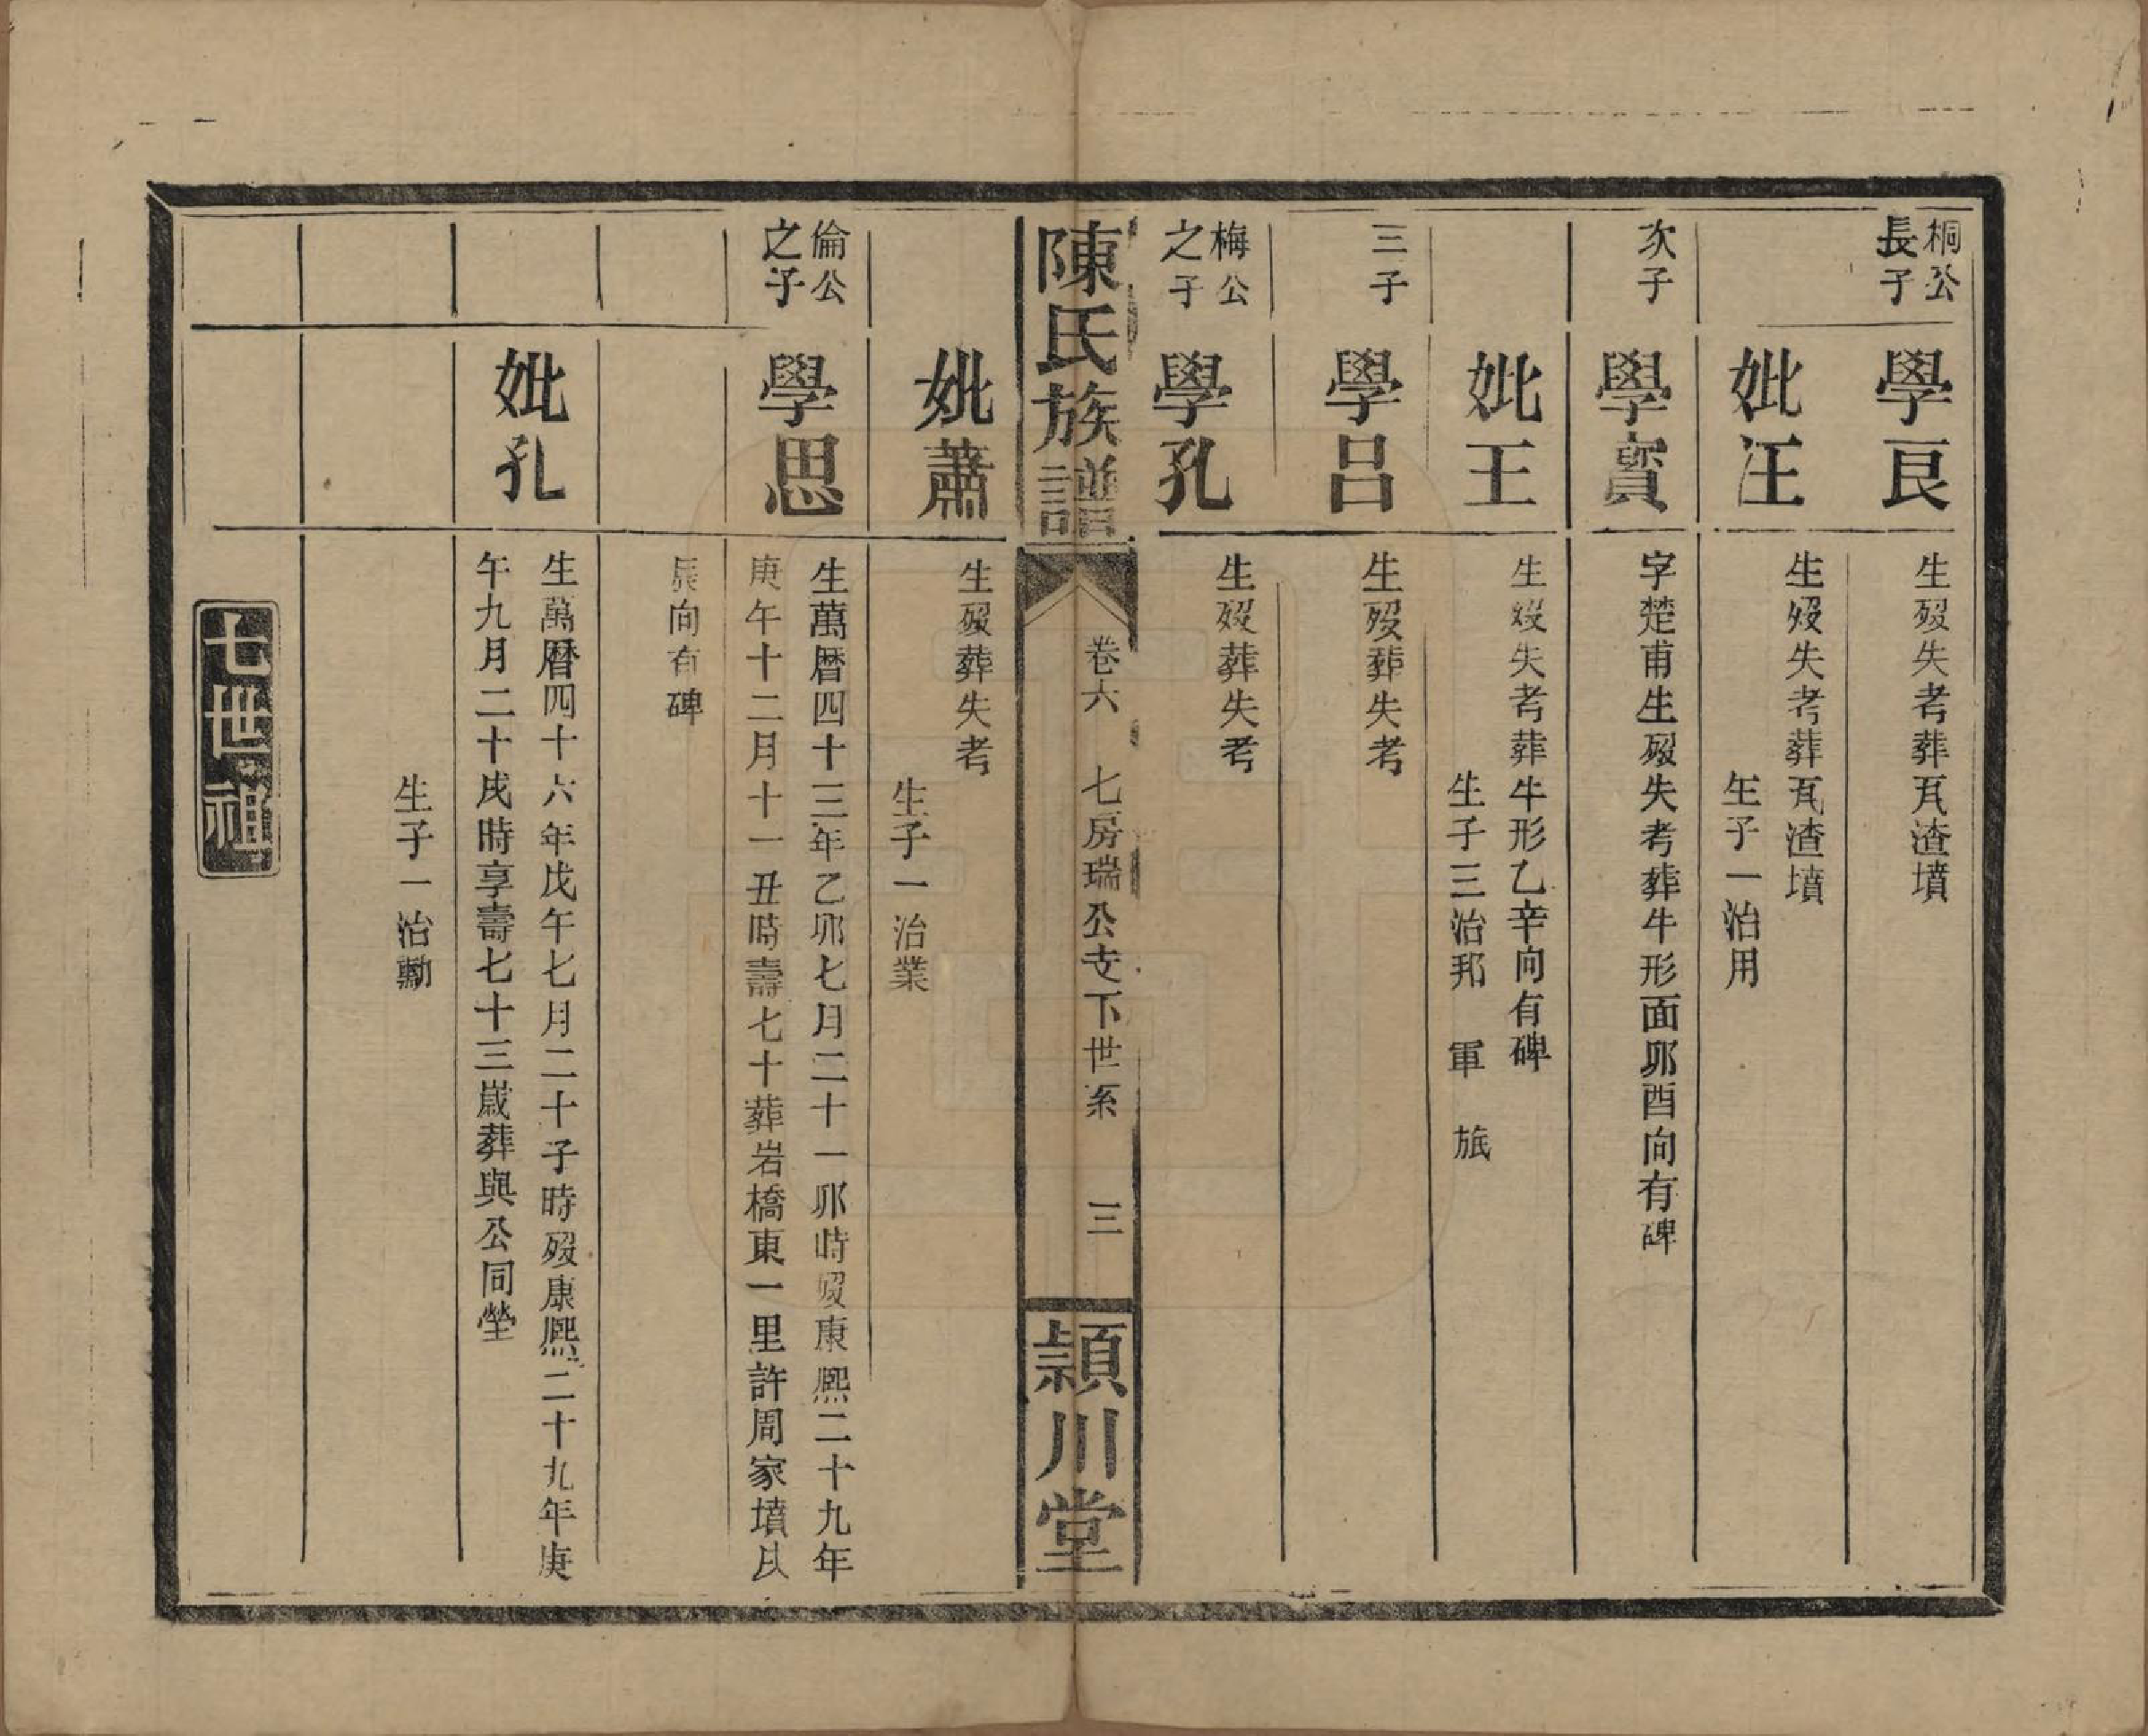 桐公
長子
學良
生歿失考葬瓦渣墳
妣汪
生歿失考葬瓦渣墳
生子一治用
次子
學賓
字楚甫生歿失考葬牛形面夘酉向有碑
妣王
生歿失考葬牛形乙辛向有碑
生子三治邦 軍 旅
三子
學呂
生歿葬失考
梅公
之子
學孔
生歿葬失考
陳氏族譜
卷六 七房瑞公支下世系 三
頴川堂
妣蕭
生歿葬失考
生子一治業
倫公
之子
學思
生萬曆四十三年乙夘七月二十一夘時歿康熙二十九年
庚午十二月十一丑時壽七十葬岩橋東一里許周家墳戌
辰向有碑
妣孔
生萬曆四十六年戊午七月二十子時歿康熙二十九年庚
午九月二十戌時享壽七十三歲葬與公同塋
生子一治勳
七世祖